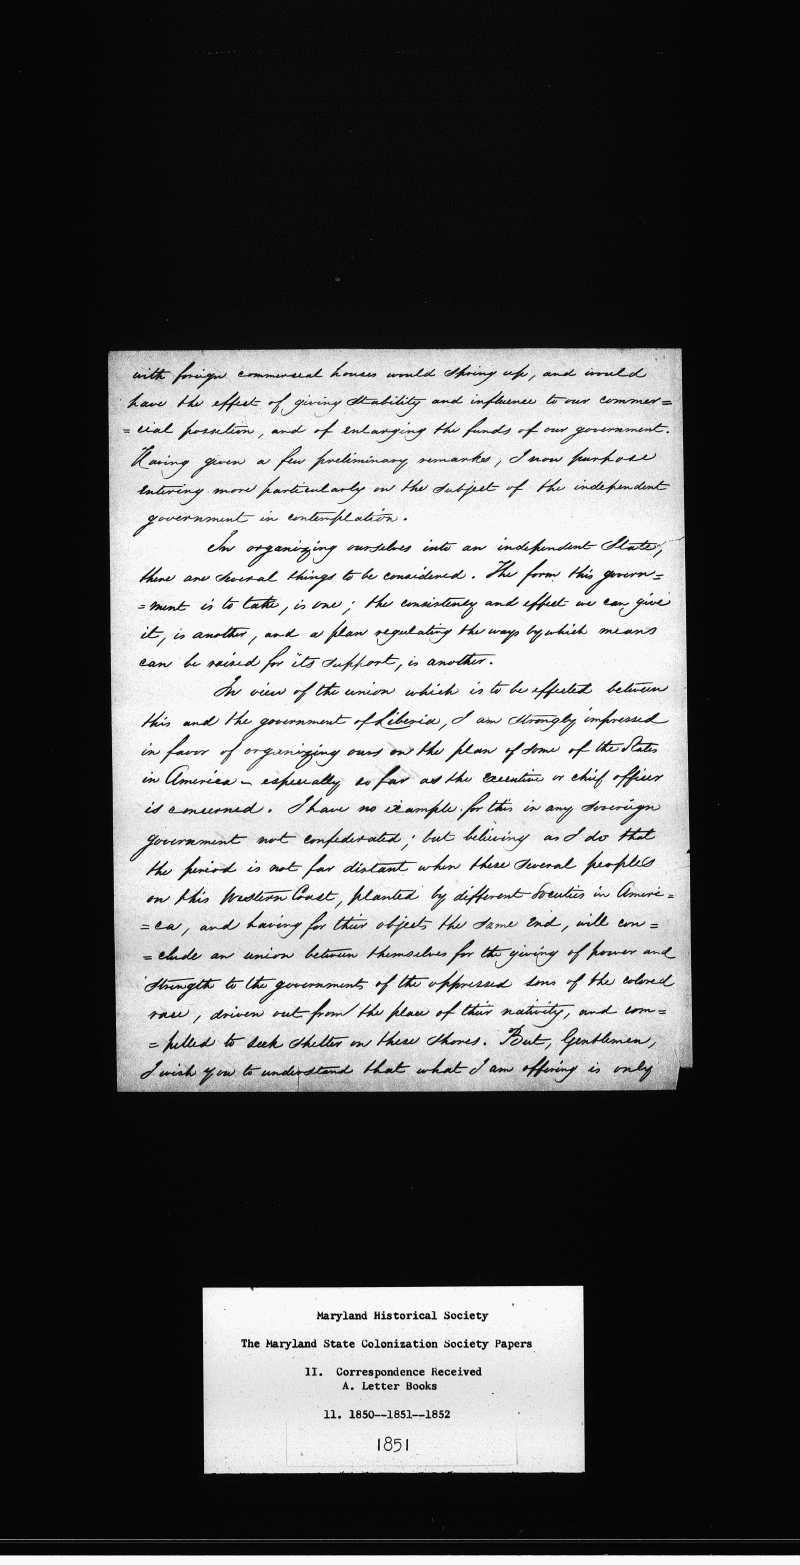 with foreign commercial houses would spring up, and would
have the effect of giving stability and influence to our commer=
=cial position, and of enlarging the funds of our government.
Having given a few preliminary remarks, I now purpose
entering more particularly on the subject of the independent
government in contemplation.
In organizing ourselves into an independent State,
there are several things to be considered. The form this govern=
=ment is to take, is one; the consistency and effect we can give
it, is another, and a plan regulating the ways by which means
can be raised for its support, is another.
In view of the union which is to be effected between
this and the government of Liberia, I am strongly impressed
in favor of organizing ours on the plan of some of the States
in America - especially so far as the executive or chief officer
is concerned. I have no example for this in any sovereign
government not confederated; but believing as I do that
the period is not far distant when these several peoples
on this Western Coast, planted by different societies in Ameri=
=ca, and having for their objects the same end, will con=
=clude an union between themselves for the giving of power and
strength to the governments of the oppressed sons of the colored
race, driven out from the place of their nativity, and com=
=pelled to seek shelter on these shores. But, Gentlemen,
I wish you to understand that what I am offering is only
Maryland Historical Society
The Maryland State Colonization Society Papers
II. Correspondence Received
A. Letter Books
11. 1850--1851--1852
1851